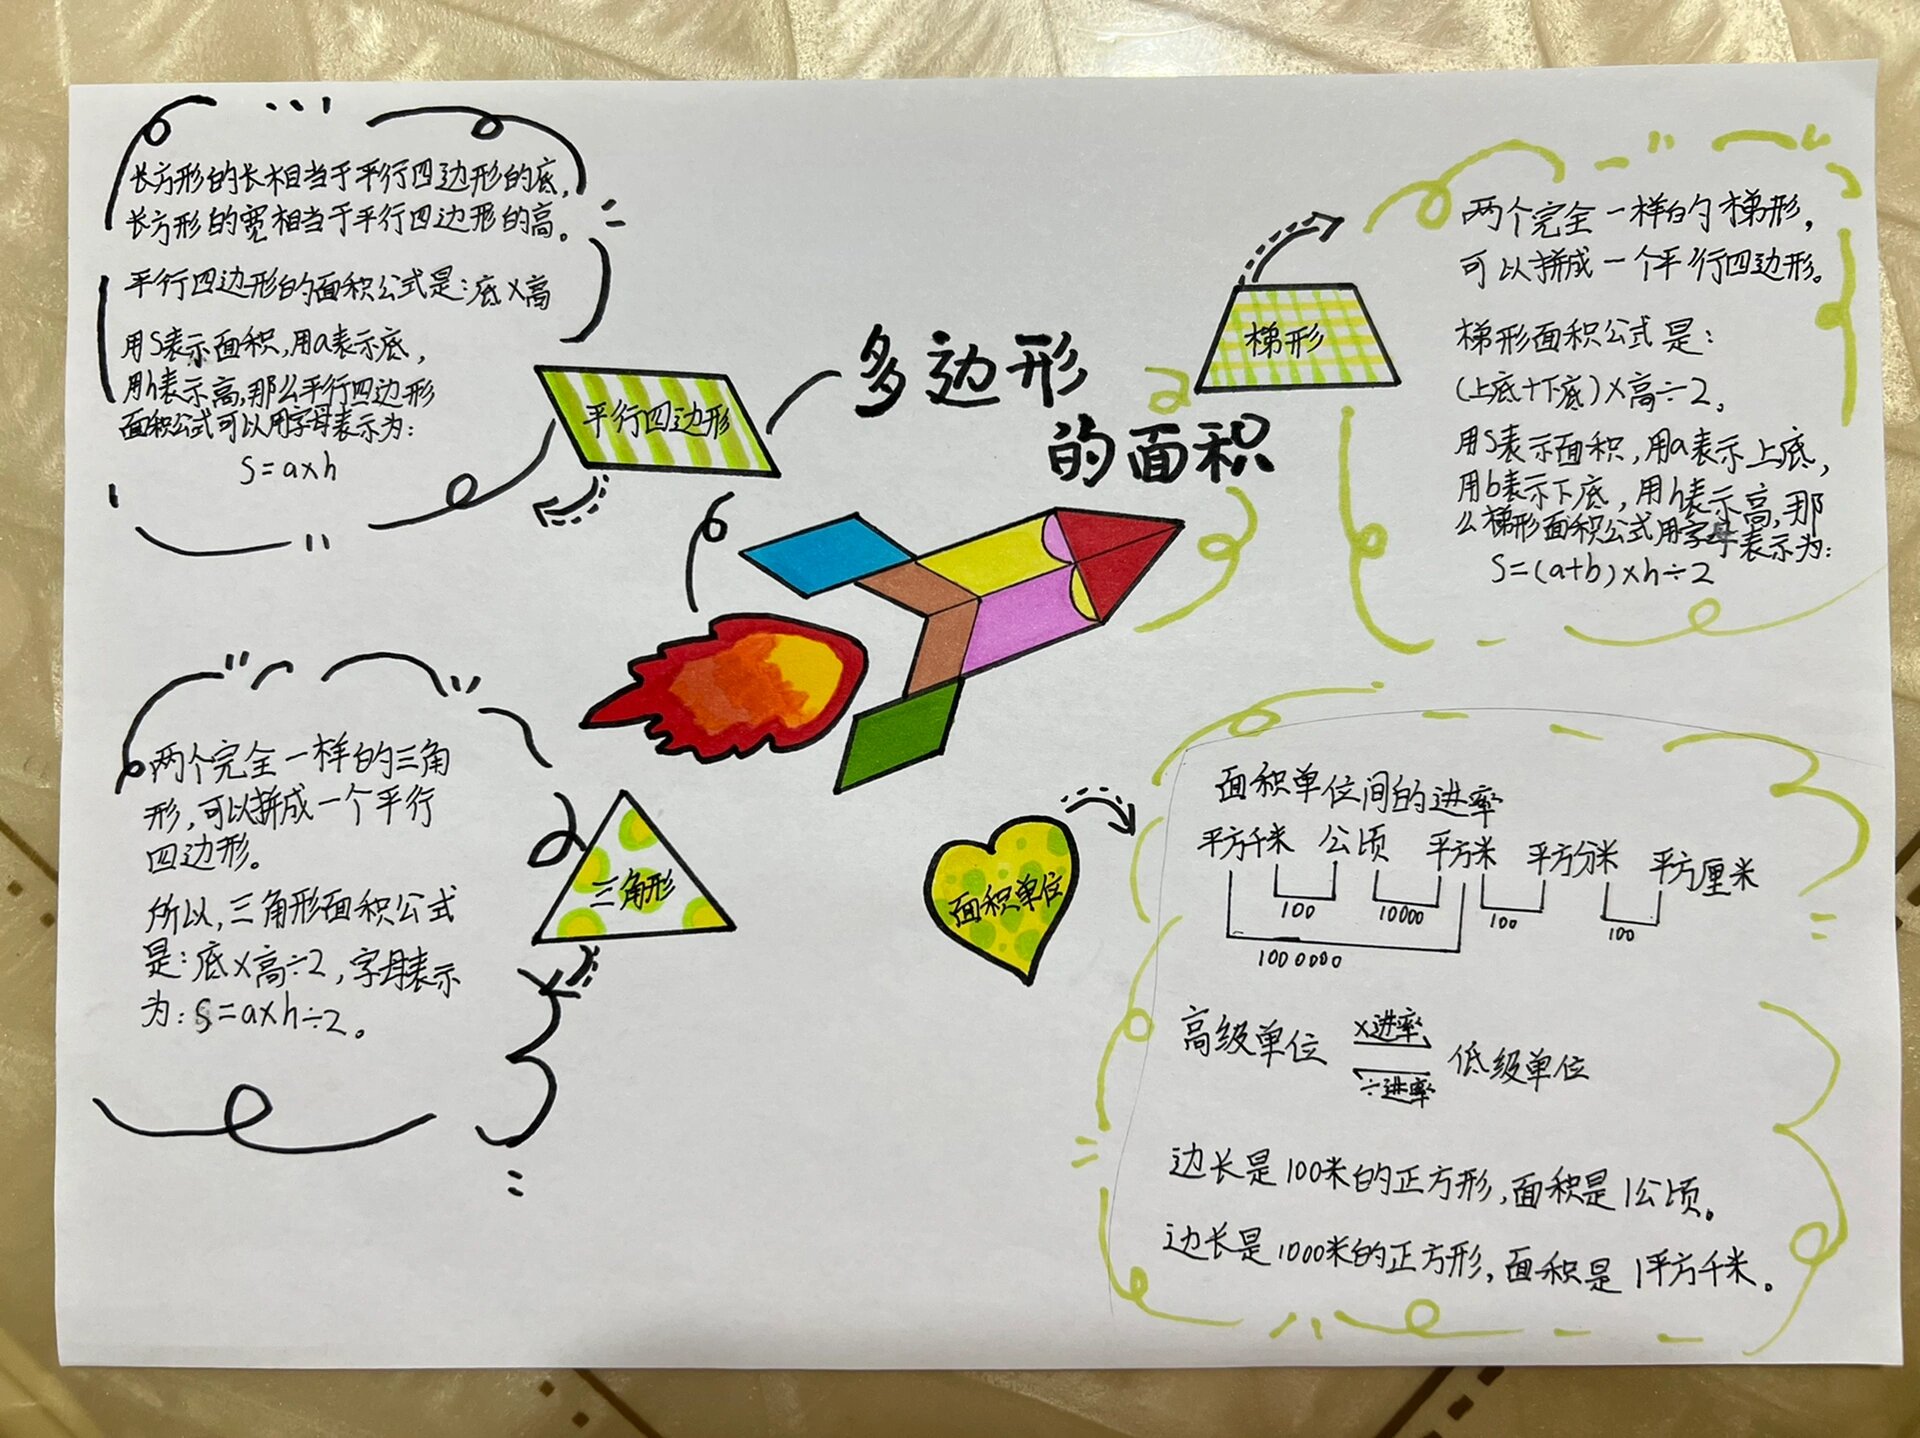 多边形
的面积
长方形的长相当于平行四边形的底,
长方形的宽相当于平行四边形的高。
平行四边形的面积公式是:底×高
用S表示面积,用a表示底,
用h表示高,那么平行四边形
面积公式可以用字母表示为:
S=a×h
平行四边形
梯形
两个完全一样的梯形,
可以拼成一个平行四边形。
梯形面积公式是:
(上底+下底)×高÷2。
用S表示面积,用a表示上底,
用b表示下底,用h表示高,那
么梯形面积公式用字母表示为:
S=(a+b)×h÷2
两个完全一样的三角
形,可以拼成一个平行
四边形。
所以,三角形面积公式
是:底×高÷2,字母表示
为:S=a×h÷2。
三角形
面积单位
面积单位间的进率
平方千米 公顷 平方米 平方分米 平方厘米
100 10000 100 100
1000000
高级单位 ×进率 低级单位
÷进率
边长是100米的正方形,面积是1公顷。
边长是1000米的正方形,面积是1平方千米。